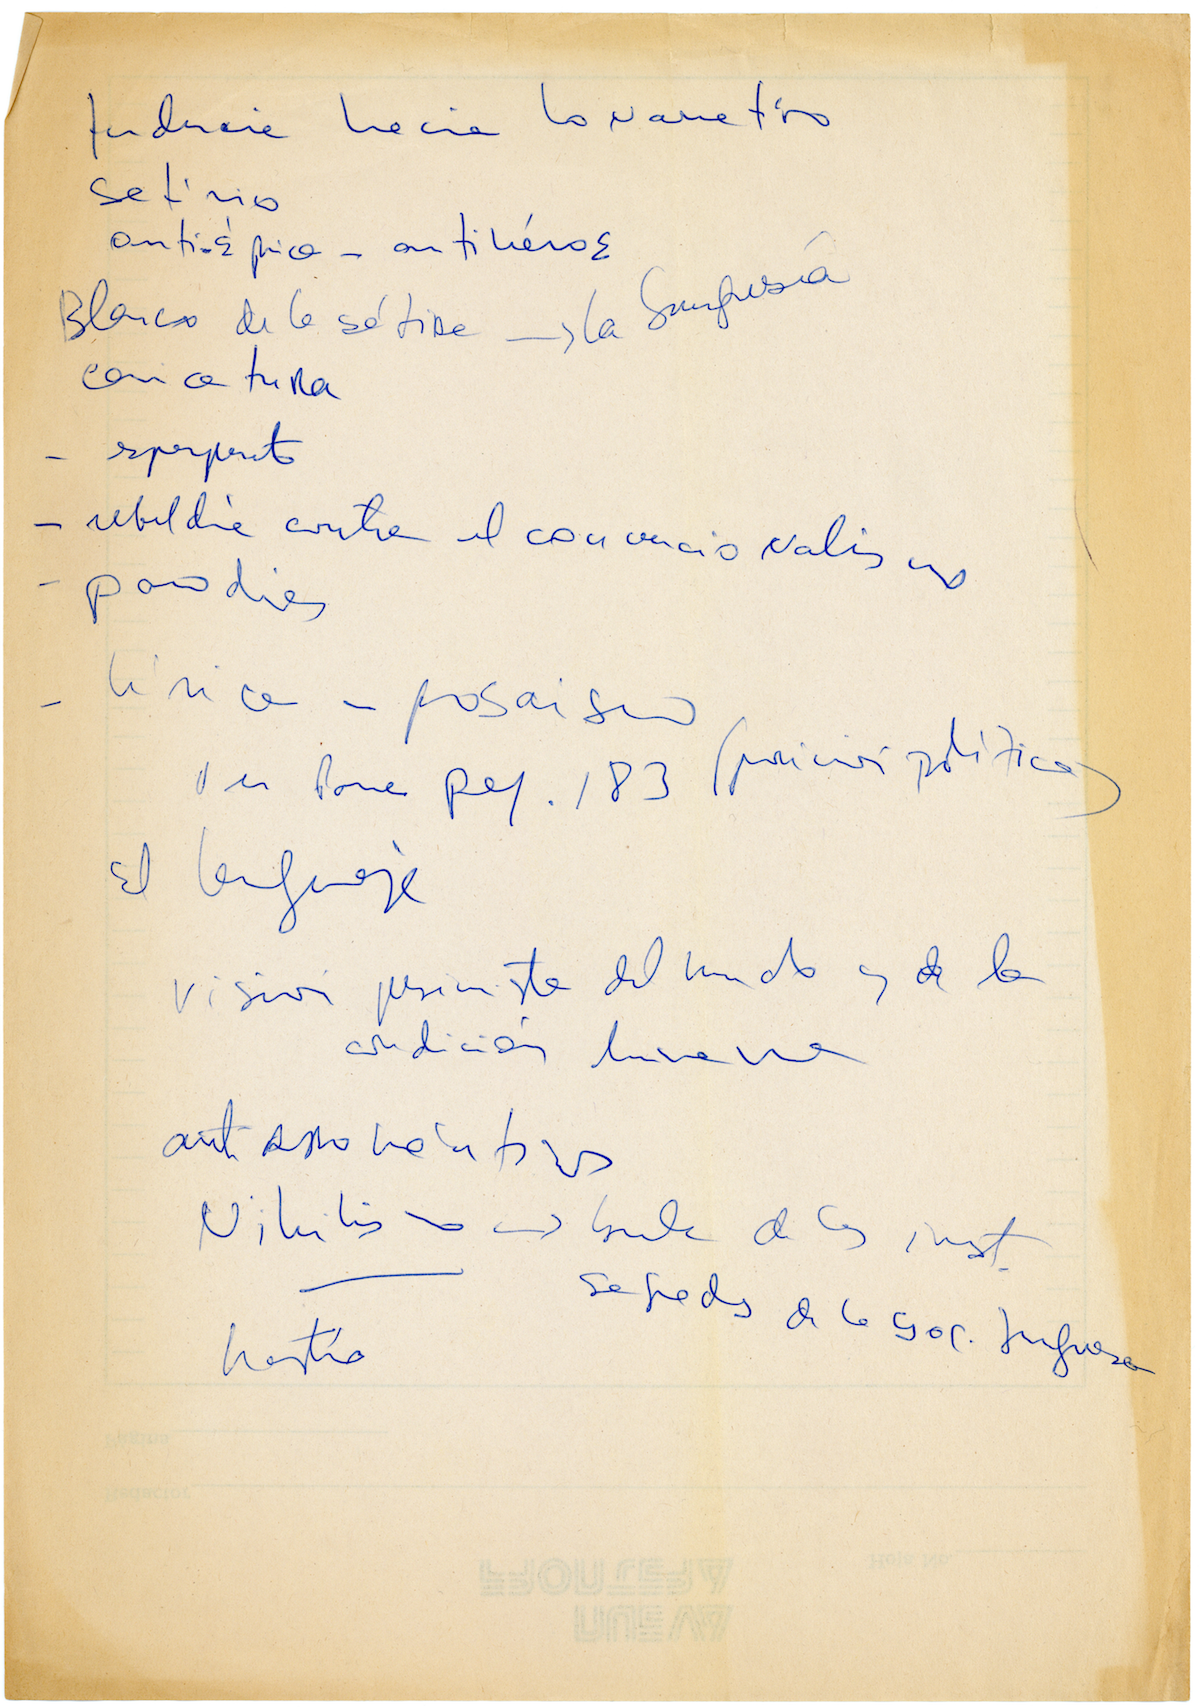 tendencia hacia lo narrativo
satírico
anti-épica - antihéroe
Blanco de la sátira → la burguesía
caricatura
- esperpento
- rebeldía contra el convencionalismo
- parodias
- lírica - prosaísmo
pag. 183 (poesía política)
el lenguaje
visión pesimista del mundo y de la
condición humana
antirromanticismo
Nihilismo → burla de las inst.
sagradas de la soc. burguesa
hastío
FRONTERA
NUEVA